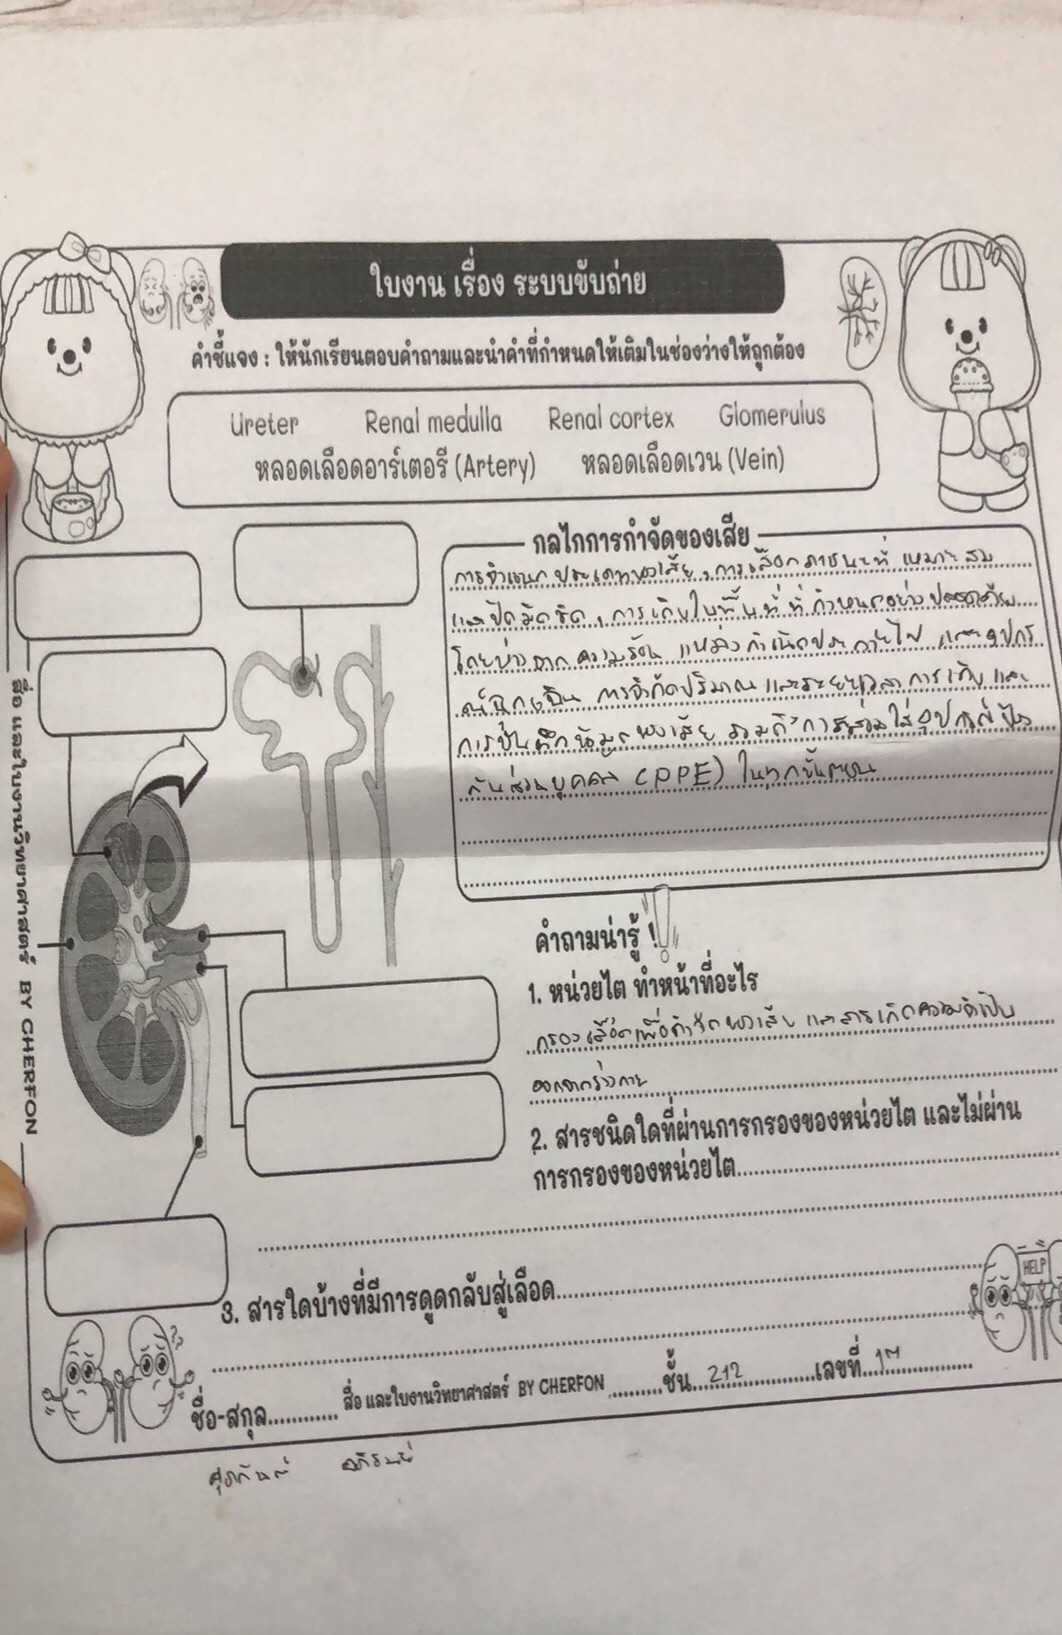 ใบงาน เรื่อง ระบบขับถ่าย
คำชี้แจง : ให้นักเรียนตอบคำถามและนำคำที่กำหนดให้เติมในช่องว่างให้ถูกต้อง
Ureter Renal medulla Renal cortex Glomerulus
หลอดเลือดอาร์เตอรี (Artery) หลอดเลือดเวน (Vein)
กลไกการกำจัดของเสีย
การจำแนกประเภทของเสีย , การเลือกภาชนะที่ เหมาะสม
และปิดมิดชิด , การเก็บในพื้นที่ที่กำหนดอย่างปลอดภัย
โดยห่างจาก ความร้อน แหล่งกำเนิดประกายไฟ และอุปกร
ณ์ฉุกเฉิน การจำกัดปริมาณ และระยะเวลา การเก็บ และ
การบันทึกข้อมูลของเสีย รวมถึงการสวมใส่อุปกรณ์ป้อง
กันส่วนบุคคล (PPE) ในทุกขั้นตอน
คำถามน่ารู้ !
1. หน่วยไต ทำหน้าที่อะไร
กรองเลือดเพื่อกำจัดของเสีย และสารเกิดความจำเป็น
ออกจากร่างกาย
2. สารชนิดใดที่ผ่านการกรองของหน่วยไต และไม่ผ่าน
การกรองของหน่วยไต
3. สารใดบ้างที่มีการดูดกลับสู่เลือด
HELP
ชื่อ-สกุล สื่อ และใบงานวิทยาศาสตร์ BY CHERFON ชั้น 212 เลขที่ 17
สื่อ และใบงานวิทยาศาสตร์ BY CHERFON